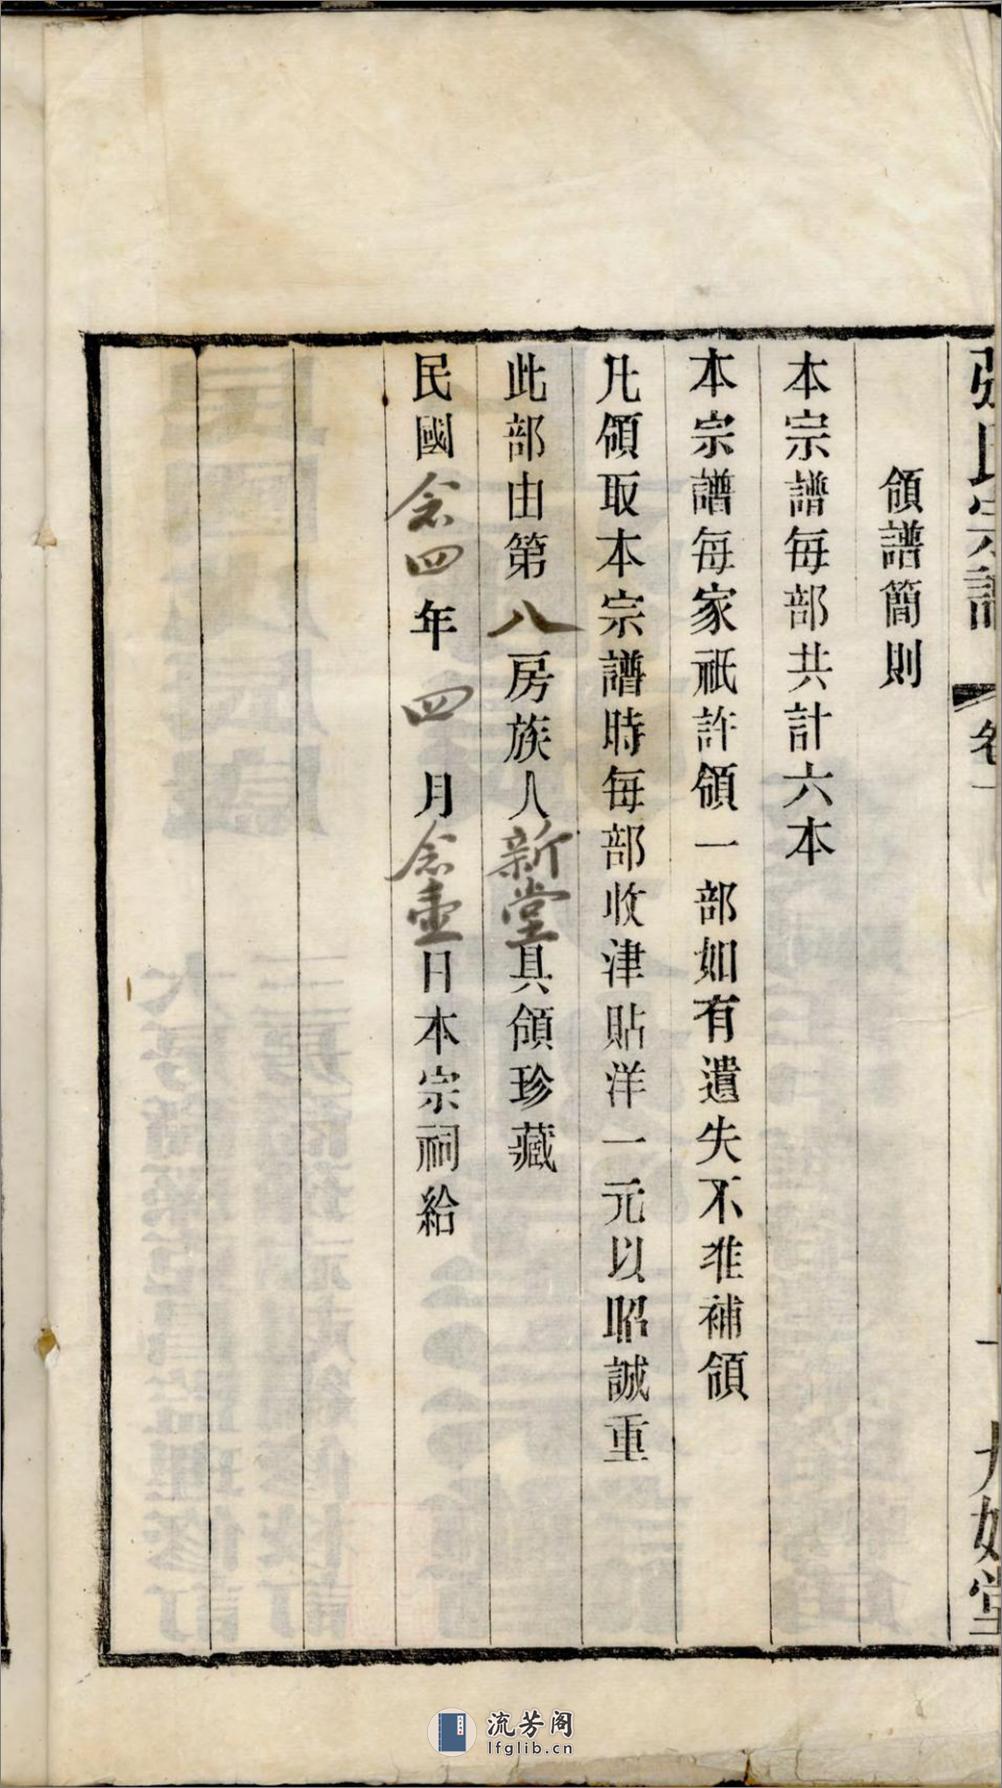 張氏宗譜 卷一 一 九如堂
領譜簡則
本宗譜每部共計六本
本宗譜每家祇許領一部如有遺失不准補領
凡領取本宗譜時每部收津貼洋一元以昭誠重
此部由第八房族人新堂具領珍藏
民國念四年四月念壹日本宗祠給
流芳阁
lfglib.cn